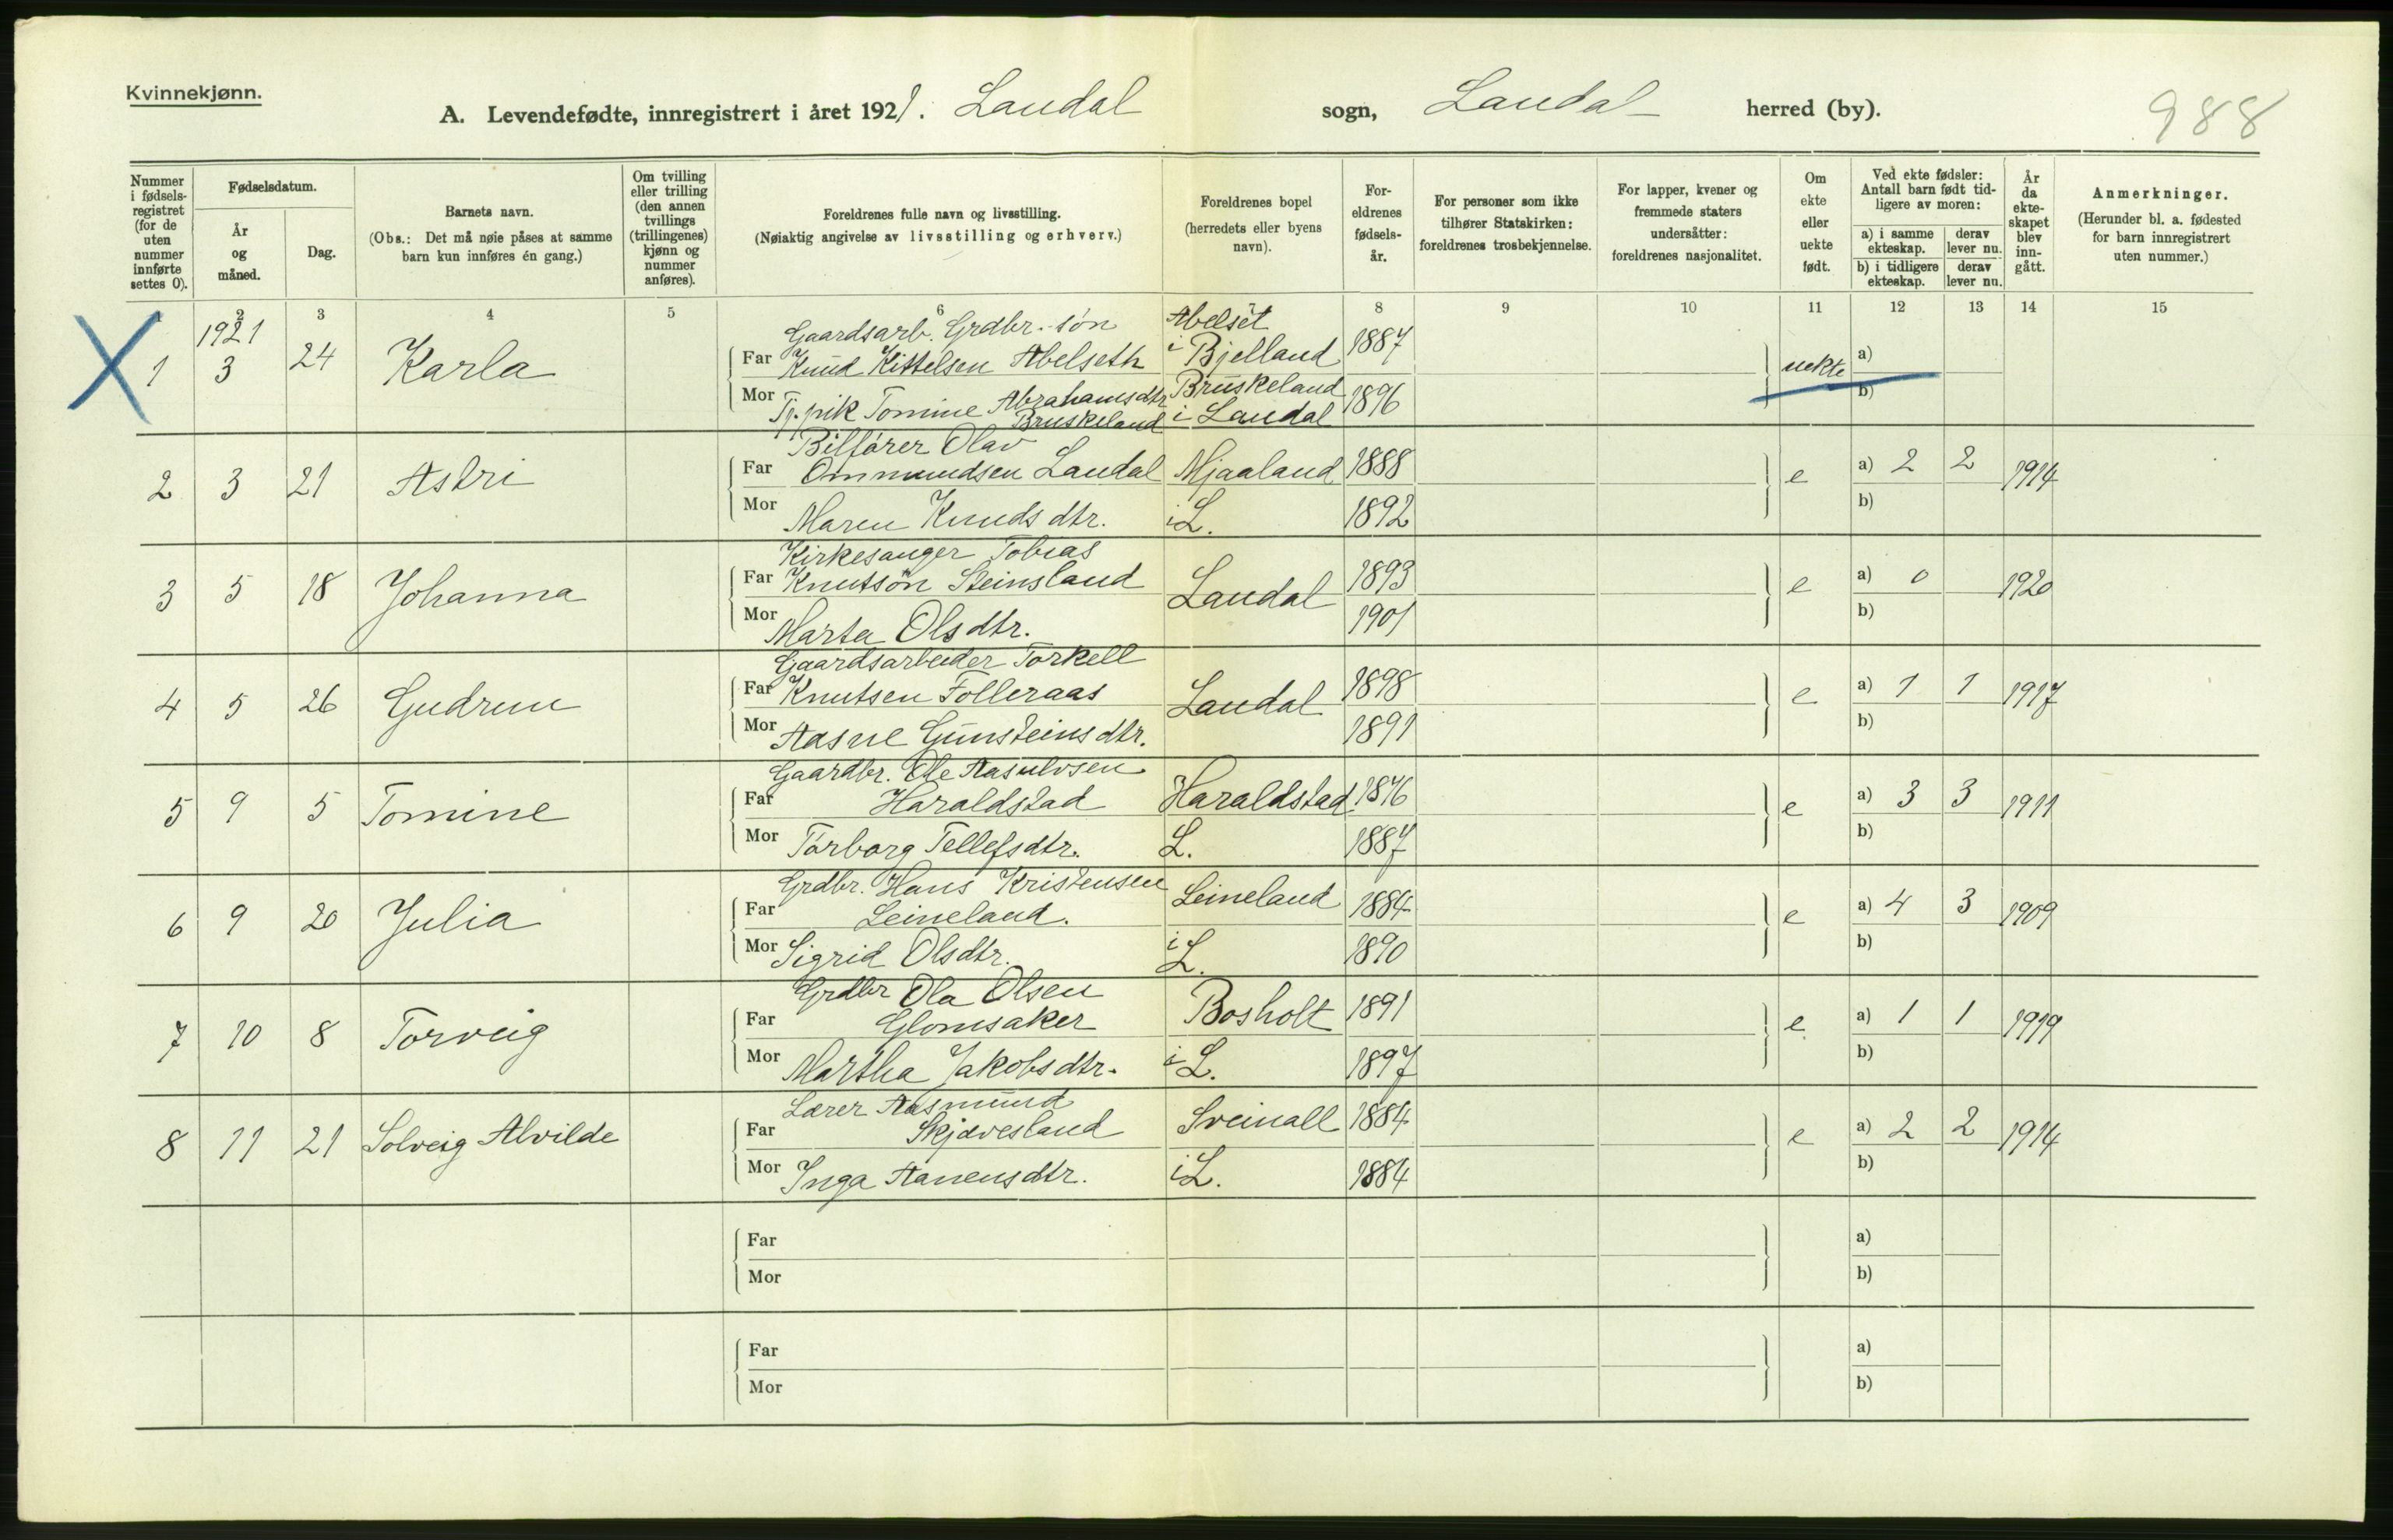 Kvinnekjønn.
A. Levendefødte, innregistrert i året 1921. Laudal sogn, Laudal herred (by).
988
Nummer i fødselsregistret (for de uten nummer innførte settes 0).
Fødselsdatum.
År og måned.
Dag.
Barnets navn.
(Obs.: Det må nøie påses at samme barn kun innføres én gang.)
Om tvilling eller trilling (den annen tvillings (trillingenes) kjønn og nummer anføres).
Foreldrenes fulle navn og livsstilling.
(Nøiaktig angivelse av livsstilling og erhverv.)
Foreldrenes bopel (herredets eller byens navn).
Foreldrenes fødselsår.
For personer som ikke tilhører Statskirken: foreldrenes trosbekjennelse.
For lapper, kvener og fremmede staters undersåtter: foreldrenes nasjonalitet.
Om ekte eller uekte født.
Ved ekte fødsler: Antall barn født tidligere av moren:
a) i samme ekteskap. derav lever nu.
b) i tidligere ekteskap. derav lever nu.
År da ekteskapet blev inngått.
Anmerkninger.
(Herunder bl. a. fødested for barn innregistrert uten nummer.)
1 2 3 4 5 6 7 8 9 10 11 12 13 14 15
1921
Gaardsarb. Grdbr.-søn Abelset
1 3 24 Karla Far Knud Kittelsen Abelseth i Bjelland 1887 uekte a)
Mor Tj.pik Tomine Abrahamsdtr Bruskeland 1896 b)
Bruskeland i Laudal
Bilfører Olav
2 3 21 Astri Far Ommundsen Laudal Mjaaland 1888 e a) 2 2 1914
Mor Maren Knudsdtr. i L. 1892 b)
Kirkesanger Tobias
3 5 18 Johanna Far Knutsøn Steinsland Laudal 1893 e a) 0 1920
Mor Marta Olsdtr. 1901 b)
Gaardsarbeider Torkell
4 5 26 Gudrun Far Knutsen Folleraas Laudal 1898 e a) 1 1 1917
Mor Aasne Gunsteinsdtr. 1891 b)
Gaardbr. Ole Aasulvsen
5 9 5 Tomine Far Haraldstad Haraldstad 1876 e a) 3 3 1911
Mor Torborg Tellefsdtr. L. 1887 b)
Grdbr. Hans Kristensen
6 9 20 Julia Far Leineland. Leineland 1884 e a) 4 3 1909
Mor Sigrid Olsdtr. i L. 1890 b)
Grdbr Ola Olsen
7 10 8 Torveig Far Glomsaker Bosholt 1891 e a) 1 1 1919
Mor Martha Jakobsdtr. i L. 1897 b)
Lærer Aasmund
8 11 21 Solveig Alvilde Far Skjævesland Sveinall 1884 e a) 2 2 1914
Mor Inga Aanensdtr. i L. 1884 b)
Far a)
Mor b)
Far a)
Mor b)